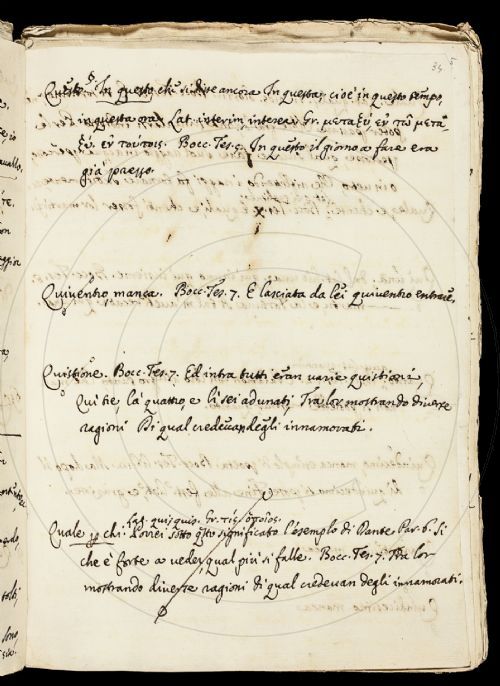 34 5
Questo §. In questo che si dice ancora In questa, cioè in questo tempo,
in questa ora. Lat. interim, interea. Gr. μεταξὺ, ἐν τῷ μετα
ξὺ. ἐν τούτοις. Bocc. Tes. 5. In questo il giorno a fare era
già presso.
Quiventro, manca. Bocc. Tes. 7. E lasciata da lei quiventro entrare.
Quistione. Bocc. Tes. 7. Ed intra tutti eran varie quistioni,
Qui tre, là quattro e lì sei adunati, Tra lor mostrando diverse
ragioni Di qual credevan degli innamorati.
Lat. quisquis. Gr. τὶς, ὁποῖος.
Quale chi. Porrei sotto qsto significato l'esemplo di Dante Par. 6. Sì
che è forte a veder, qual più si falle. Bocc. Tes. 7. Tra lor
mostrando diverse ragioni di qual credevan degli innamorati.